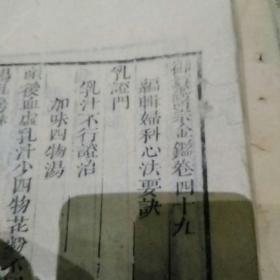 御纂醫宗金鑑卷四十九
編輯婦科心法要訣
乳證門
乳汁不行證治
加味四物湯
產後血虛乳汁少四物花粉不